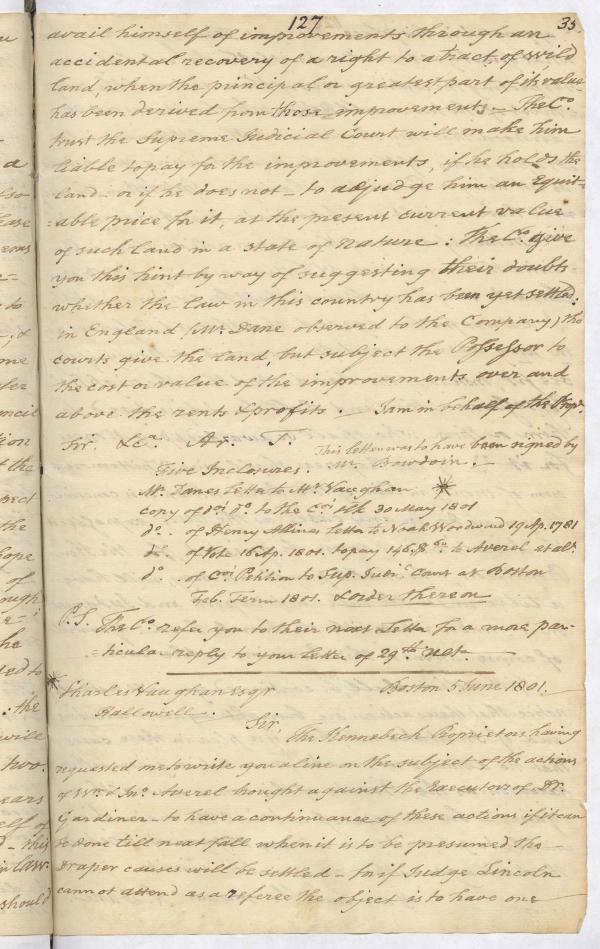 127
35
avail himself of improvements through an
accidental recovery of a right to a tract of wild
land, when the principal or greatest part of its value
has been derived from those improvements - The Co.
trust the Supreme Judicial Court will make him
liable to pay for the improvements, if he holds the
land - or if he does not - to adjudge him an Equit-
=able price for it, at the present current value
of such land in a state of nature: The Co. give
you this hint by way of suggesting their doubts
whether the law in this country has been yet settled:
in England (Mr. Dane observed to the Company) the
courts give the land, but subject the Possessor to
the cost or value of the improvements over and
above the rents & profits. I am in behalf of the Propr.
Sir. &ca. Ar. T.
This letter was to have been signed by
Mr. Bowdoin.
Five Inclosures.
Mr. Danes Letter to Mr. Vaughan
copy of do. to the 30 May 1801
do. of Henry Allines Letter to Noah Woodward 19 Ap. 1781
do. of Vote 16 Ap. 1801. to pay to Averel et als.
do. of Petition to Sup. Judl. Court at Boston
Feb. Term 1801. & order thereon
P.S. The Co. refer you to their next Letter for a more par-
=ticular reply to your letter of 29th Ulto.
Charles Vaughan Esqr Boston 5 June 1801.
Hallowell.
Sir. The Kennebeck Proprietors having
requested me to write you a line on the subject of the actions
of Wm. & Jno. Averel brought against the Executors of Dr.
Gardiner - to have a continuance of these actions if it can
be done till next fall when it is to be presumed the
Draper causes will be settled - for if Judge Lincoln
cannot attend as a referee the object is to have one